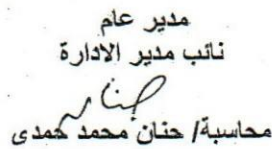 مدير عام
نائب مدير الادارة
محاسبة/ حنان محمد حمدى